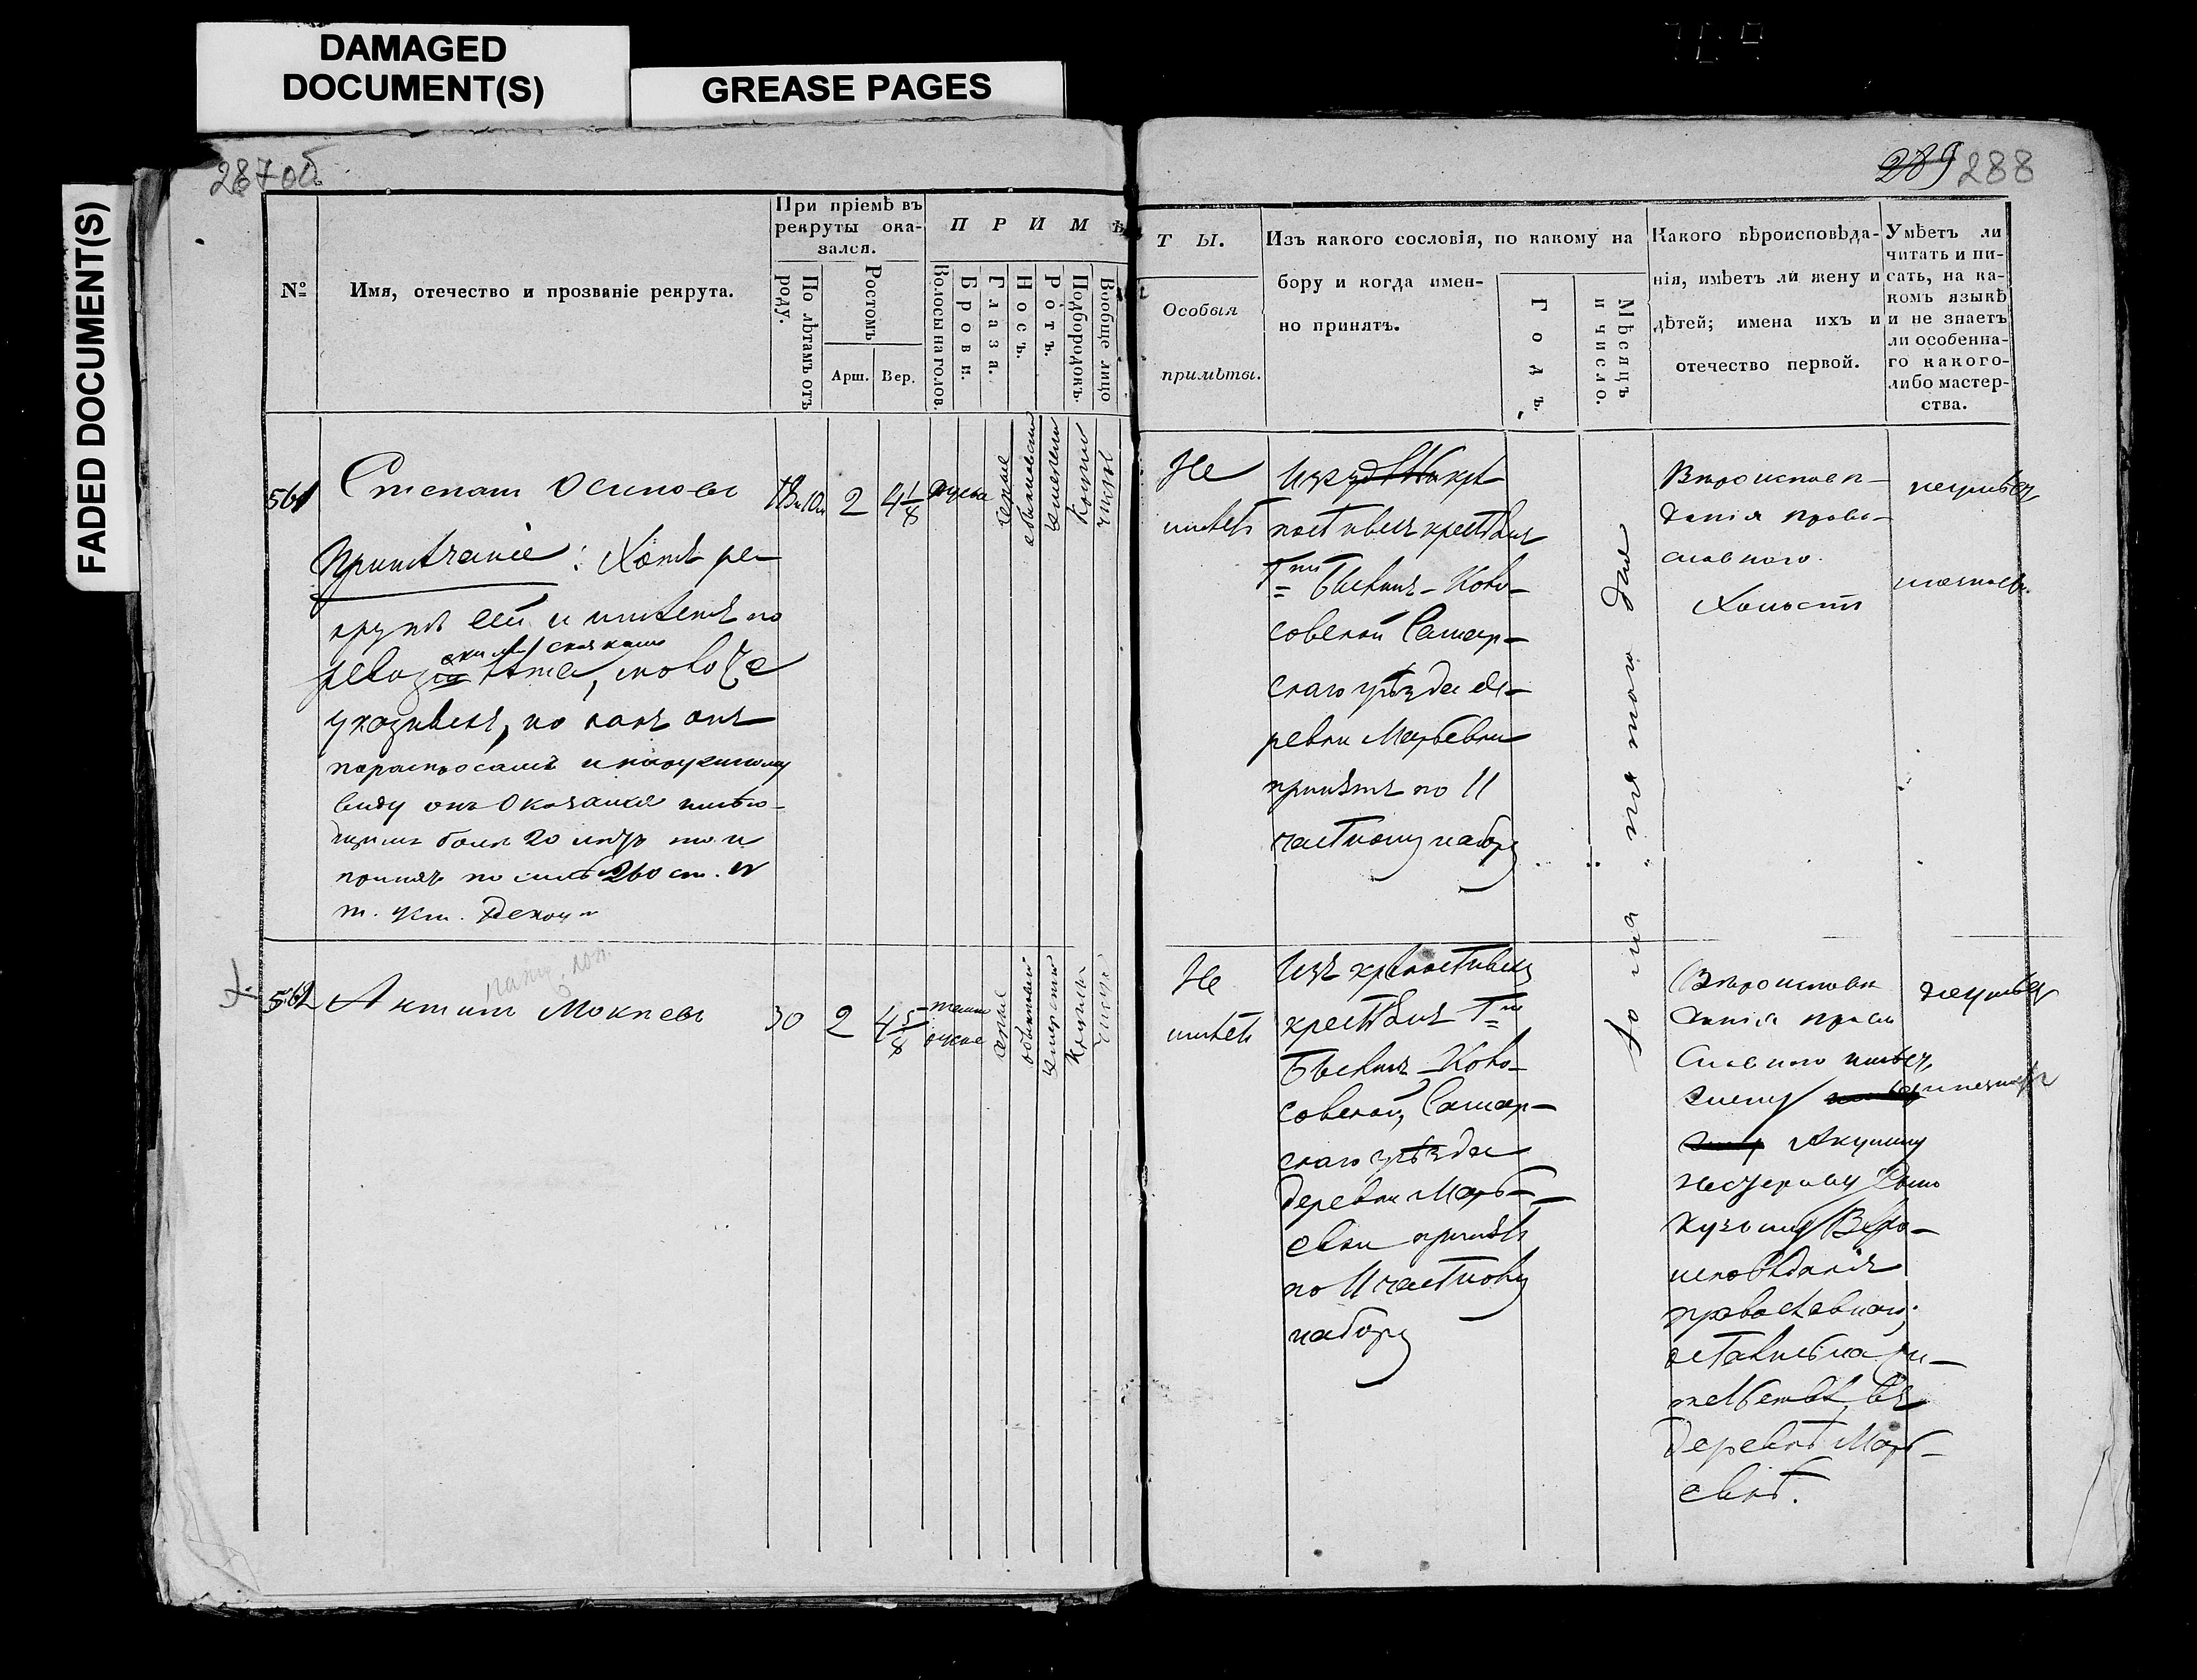 DAMAGED
DOCUMENT(S)
GREASE PAGES
FADED DOCUMENT(S)
287об
289 288
№
Имя, отечество и прозваніе рекрута.
При пріемѣ въ
рекруты ока-
зался.
По лѣтамъ отъ
роду.
Ростомъ
Арш. Вер.
П Р И М Ѣ
Волосы на голов.
Брови.
Глаза.
Носъ.
Ротъ.
Подбородокъ.
Вообще лицо
Т Ы.
Особыя
примѣты.
Изъ какого сословія, по какому на
бору и когда имен-
но принятъ.
Годъ.
Мѣсяцъ
и число.
Какого вѣроисповѣда-
нія, имѣетъ ли жену и
дѣтей; имена ихъ и
отечество первой.
Умѣетъ ли
читать и пи-
сать, на ка-
комъ языкѣ
и не знаетъ
ли особенна-
го какого-
либо мастер-
ства.
561
Степанъ Осиповъ
2
4 1/8
русые
сѣрые
Примѣчаніе: Хотя ре-
крутъ сей и имѣетъ по
сказкамъ
лѣта, моложе
указныхъ, но какъ онъ
виду онъ Оказался имѣю-
щимъ болѣе 20 лѣтъ то и
принятъ по силѣ 260 ст. IV
т. уст. Рекру
Не
имѣетъ
постныхъ крестьянъ
Гжи
совской Самар-
скаго уѣзда де-
ревни Марьевки
принятъ по 11
частному набору
Вѣроиспов-
данія право-
славнаго
Холостъ
неумѣетъ
562
Антипъ Мокѣевъ
30
2
4 5/8
темно
русые
сѣрые
Не
имѣетъ
Изъ крѣпостныхъ
крестьянъ Гжи
совской, Самар-
скаго уѣзда
деревни Марь-
евки принятъ
по 11 частному
набору
Вѣроиспов
данія право
славнаго имѣетъ
жену
Акулину
Нестерову Сына
Кузьму Вѣро-
исповѣданія
православнаго,
оставилъ на жи-
тельствѣ въ
деревнѣ Марь-
евкѣ.
неумѣетъ